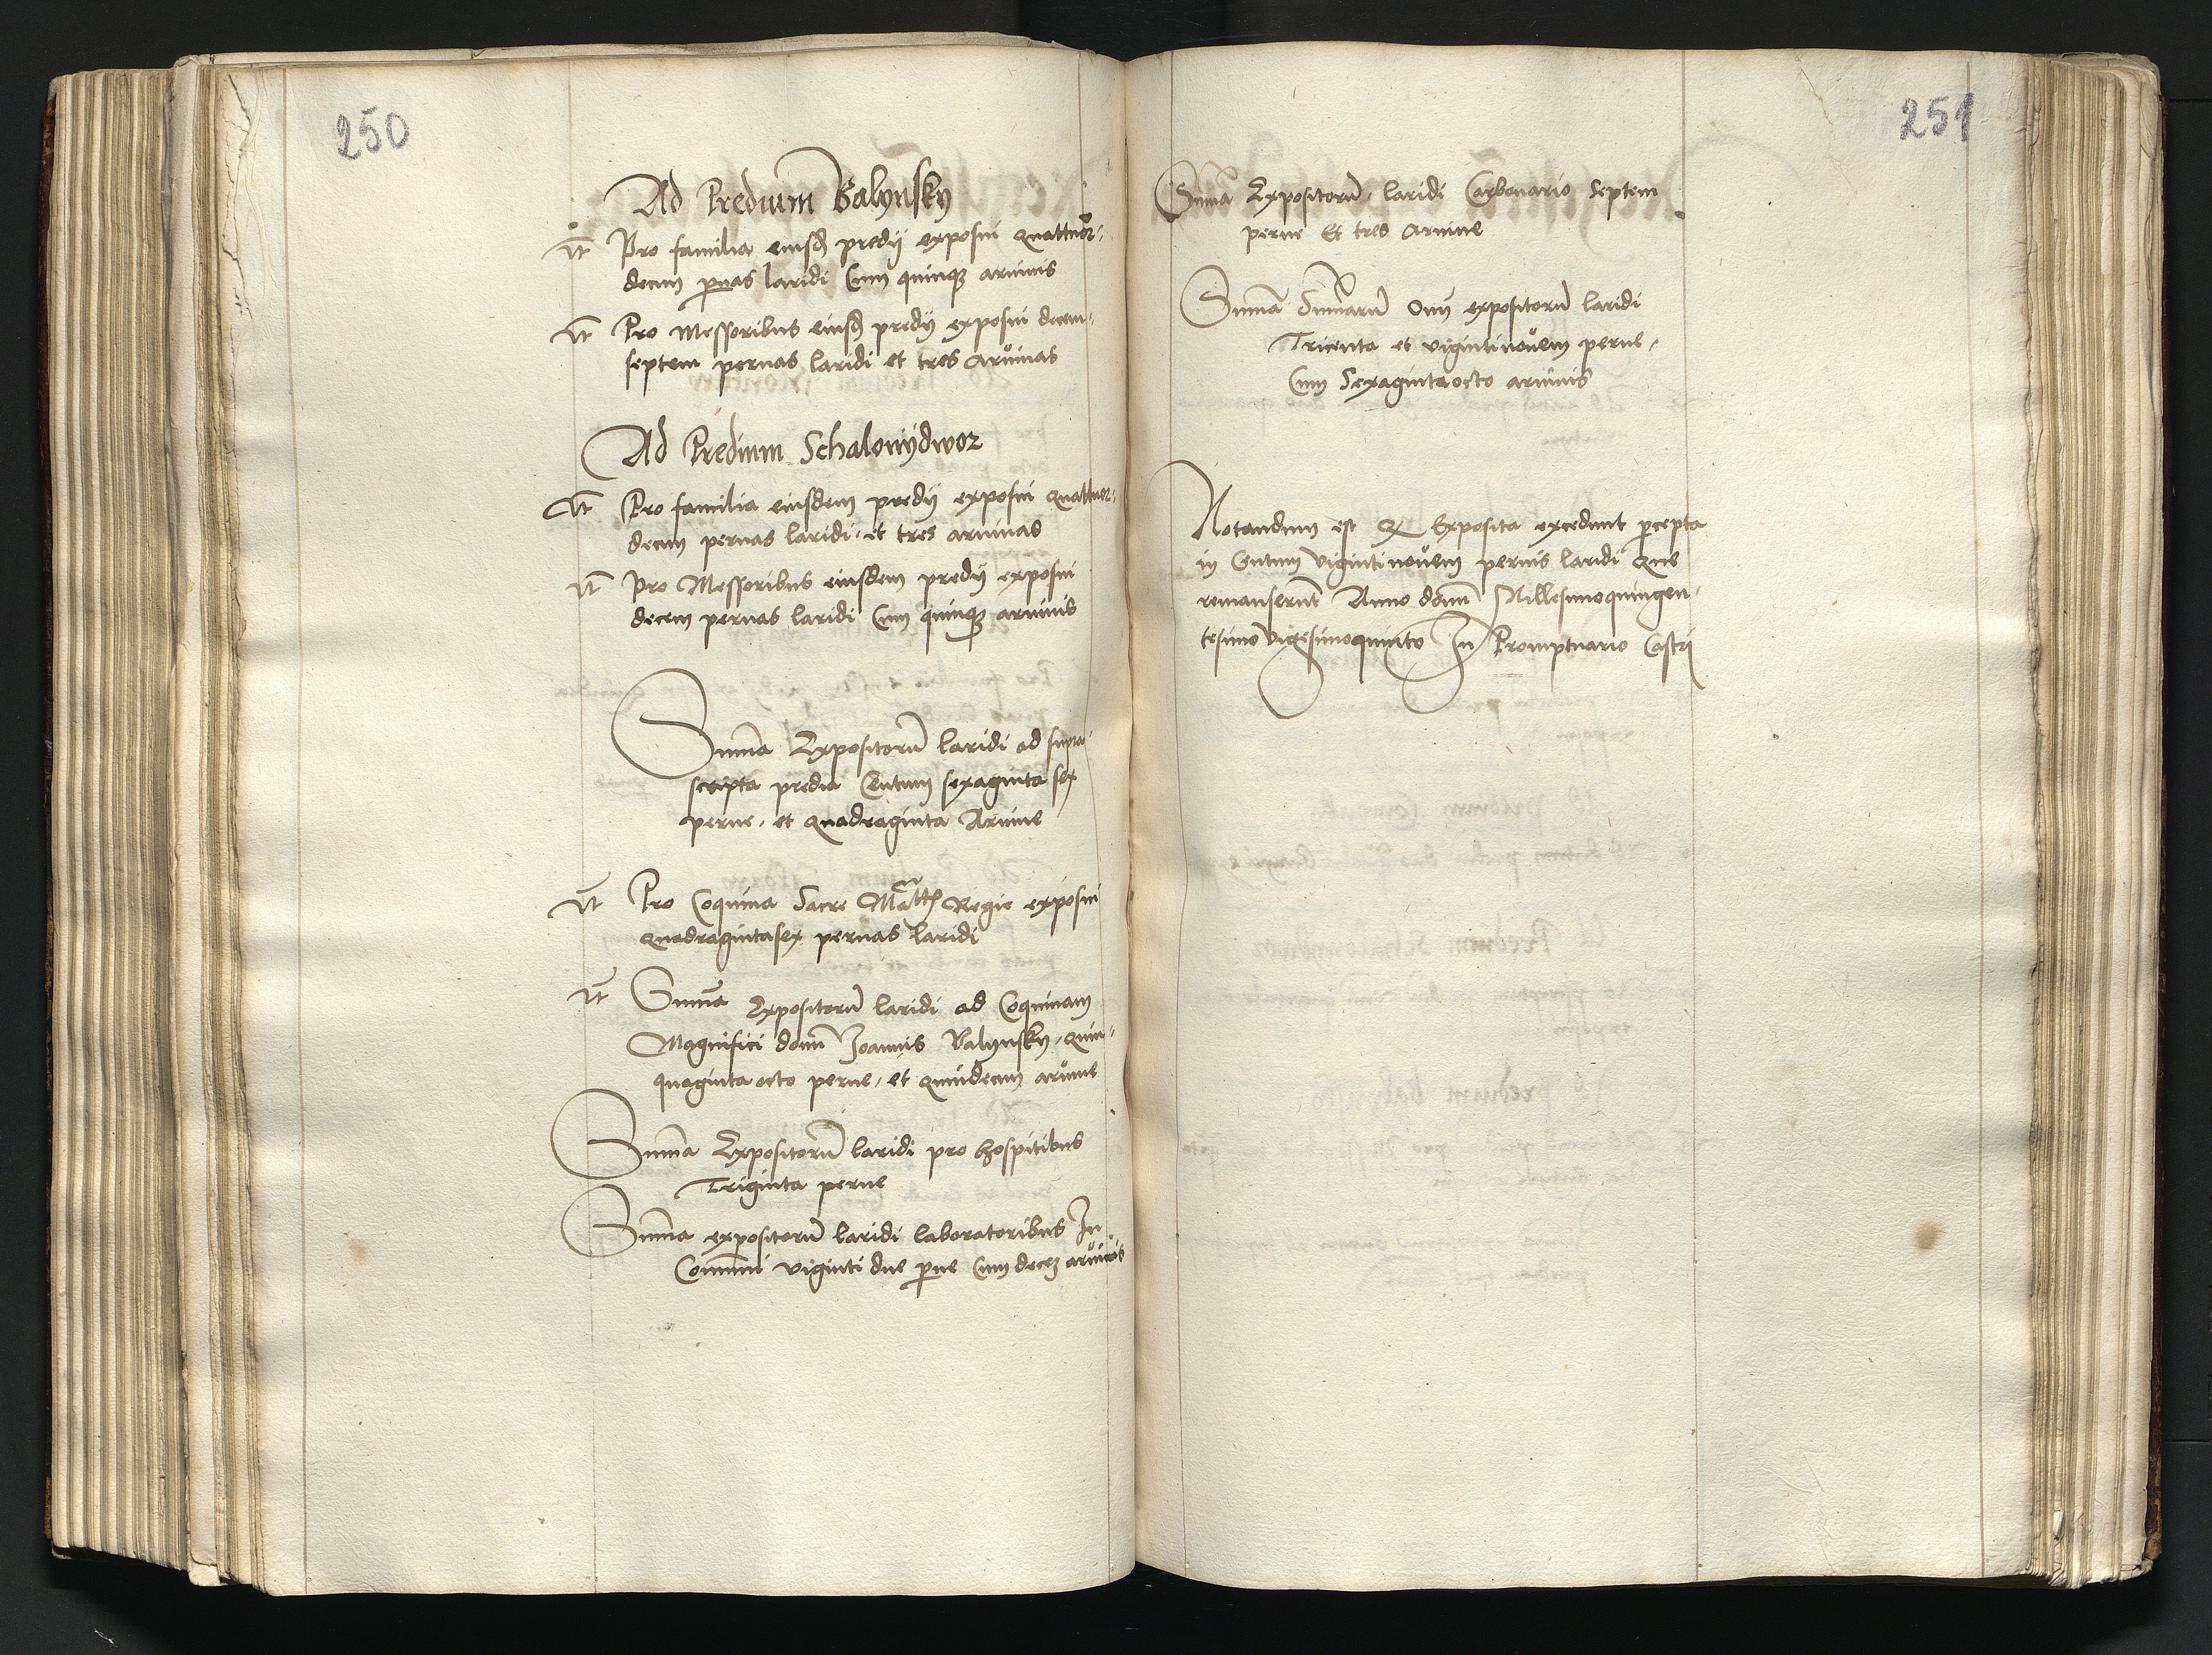 250
Ad Predium Balynsky
Itm Pro familia eiusd predij exposui quattuor-
decim pernas laridi Cum quinqz aruinis
Itm Pro Messoribus eiusd predij exposui decem-
septem pernas laridi et tres Aruinas
Ad Predium Schalonydwor
Itm Pro familia eiusdem predij exposui quattuor-
decim pernas laridi, et tres aruinas
Itm Pro Messoribus eiusdem predij exposui
decem pernas laridi Cum quinqz aruinis
Summa Expositorum laridi ad supra-
scripta predia Centum sexaginta sex
perne, et quadraginta Aruine
Itm Pro Coquina Sacre Matts Regie exposui
quadragintasex pernas laridi
Itm Summa Expositorum laridi ad Coquinam
Magnifici domni Joannis Balynsky, quin-
quaginta octo perne, et quindecim aruine
Summa Expositorum laridi pro hospitibus
Triginta perne
Summa expositorum laridi laboratoribus In
Communi viginti due perne Cum decem aruinis
251
Summa Expositorum laridi Carbonario Septem
perne Et tres Aruine
Summa Summarum Omni expositorum laridi
Tricenta et vigintinouem perne,
Cum Sexagintaocto aruinis
Notandum est Q Exposita excedunt percepta
in Centum vigintinouem pernis laridi que
remanserunt Anno domni Millesimoquingen-
tesimo vigesimoquinto In Promptuario Castri